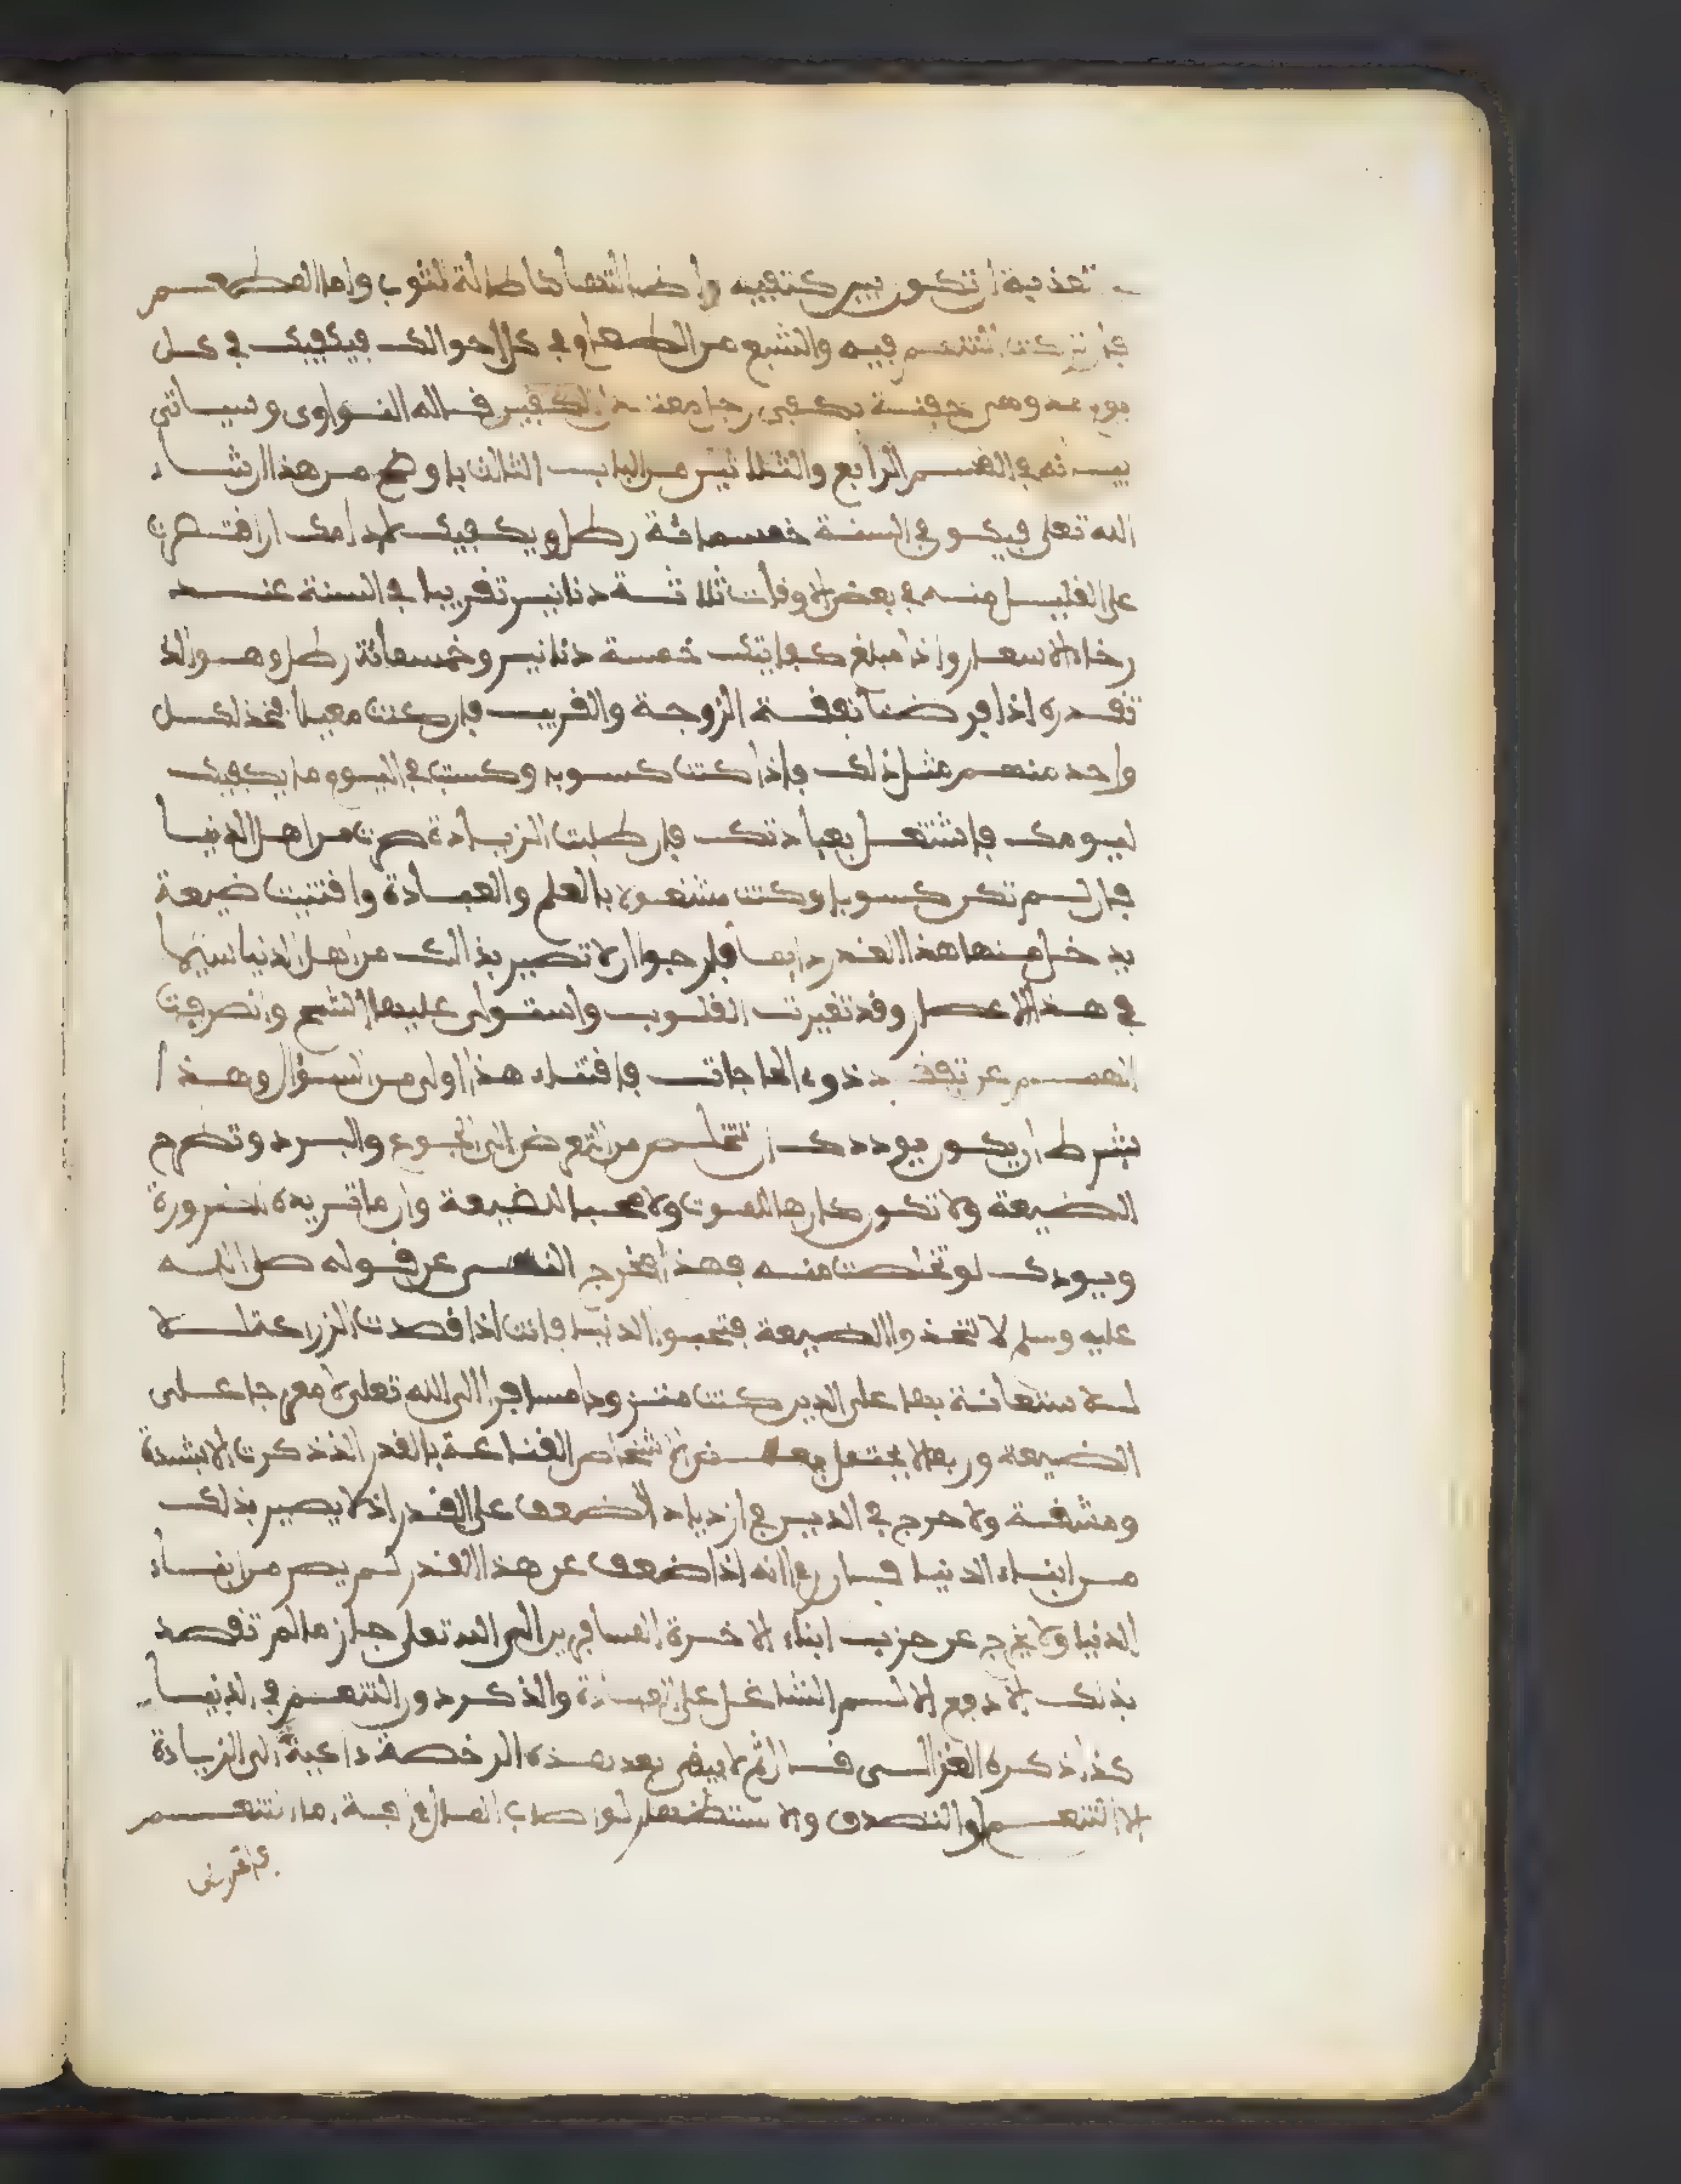 تعذبة ان تكون بين كتفيه واطالتها كاطالة الثوب واما المطعم
فان تركت التنعم فيه والشبع من الطعام في كل احوالك فيكفيك في كل
يوم مد وهي حفنة بكفي رجل معتدل الكفين فاله النواوى وسياتى
بيانه في الفسم الرابع والثلاثين من الباب الثالث باوضح من هذا ان شاء
الله تعلى فيكون في السنة خمسمائة رطل ويكفيك لادامك ان افتصرت
على الفليل منه في بعض الاوفات ثلاثة دنانير تفريبا في السنة عند
رخاء الاسعار واذا مبلغ كفايتك خمسة دنانير وخمسمائة رطل وهو الذ
تفدره اذا فرضنا نففة الزوجة والفريب فان كنت معيلا فخذ لكل
واحد منهم مثل ذلك فاذا كنت كسوبا وكسبت في اليوم ما يكفيك
ليومك فاشتغل بعبادتك فان طلبت الزيادة صرت من اهل الدنيا
فان لم تكن كسوبا وكنت مشغولا بالعلم والعبادة وافتنيت ضيعة
يدخل منها هذا الفدر دايما فارجوا ان لا تصير بذالك من اهل الدنيا سيما
في هذا الاعصار وفد تغيرت الفلوب واستولى عليها الشح وانصرفت
الهمم عن تففد ذوى الحاجات فافتناء هذا اولى من السؤال وهذا
بشرط ان يكون بودك ان تتخلص من التعرض الى الجوع والبرد وتطرح
الضيعة ولا تكون كارها للموت ولا محبا للضيعة وان ما تريده لضرورة
وبودك لو تخلصت منه فهذا مخرج النفس عن فوله صلى الله
عليه وسلم لا تتخذوا الضيعة فتحبوا الدنيا فانت اذا فصدت الزراعة
للاستعانة بها على الدين كنت متزودا مسافرا الى الله تعلى لا معرجا على
الضيعة وربما لا يحتمل بعض الاشخاص الفناعة بالفدر الذذكرت الا بشدة
ومشفة ولا حرج في الدين في ازدياد الضعف على الفدر اذ لا يصير بذلك
من ابناء الدنيا فان انه اذا ضعف عن هذا الفدر لم يصر من ابناء
الدنيا ولا يخرج عن حزب ابناء الاخرة المسافرين الى الله تعلى جاز ما لم تفصد
بذلك الا دفع الالم الشاغل على العبادة والذكر دون التنعم في الدنيا
كذا ذكره الغزالى فال ثم لا يبفى بعد هذه الرخصة داعية الى الزيادة
الا التنعم او التصدق والاستظهار لو اصاب المال افة اما التنعم